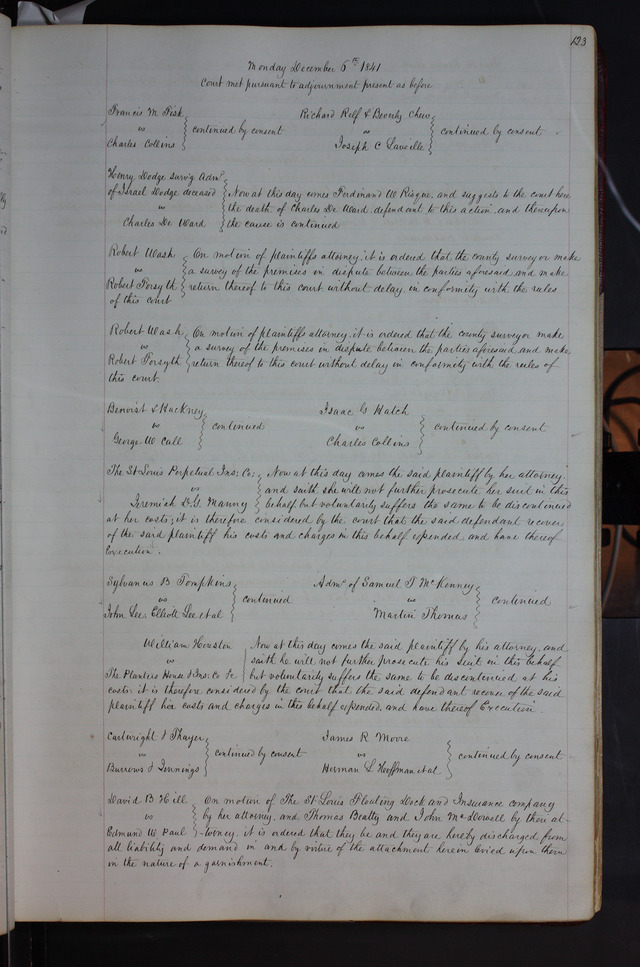 123
Monday December 6th 1841
Court met pursuant to adjournment present as before
Francis M Fisk
vs
Charles Collins
continued by consent
Richard Relf & Beverly Chew
vs
Joseph C Laveille
continued by consent
Henry Dodge surv'g Admr
of Israel Dodge deceased
vs
Charles De Ward
Now at this day comes Ferdinand W Risque, and suggests to the court here
the death of Charles De Ward, defendant to this action, and thereupon
the cause is continued
Robert Wash
vs
Robert Forsyth
On motion of plaintiffs attorney, it is ordered that the county surveyor make
a survey of the premises in dispute between the parties aforesaid, and make
return thereof to this court without delay, in conformity with the rules
of this court
Robert Wash
vs
Robert Forsyth
On motion of plaintiffs attorney, it is ordered that the county surveyor make
a survey of the premises in dispute between the parties aforesaid, and make
return thereof to this court without delay in conformity with the rules of
this court.
Benoist & Hackney
vs
George W. Call
continued
Isaac G Hatch
vs
Charles Collins
continued by consent
The St Louis Perpetual Ins: Co:
vs
Jeremiah D.G. Manny
Now at this day comes the said plaintiff by her attorney,
and saith she will not further prosecute her suit in this
behalf but voluntarily suffers the same to be discontinued
at her costs; it is therefore considered by the court that the said defendant recover
of the said plaintiff his costs and charges in this behalf expended, and have thereof
Execution.
Sylvanus B Tompkins
vs
John Lee, Elliott Lee et al
continued
Admr of Samuel T McKenney
vs
Martin Thomas
continued
William Houston
vs
The Planters House & Ins: Co
Now at this day comes the said plaintiff by his attorney, and
saith he will not further prosecute his suit in this behalf
but voluntarily suffers the same to be discontinued at his
costs: it is therefore considered by the court that the said defendant recover of the said
plaintiff her costs and charges in this behalf expended, and have thereof Execution.
Cartwright & Thayer
vs
Burrows & Jennings
continued by consent
James R Moore
vs
Herman L Hoffman et al
continued by consent
David B Hill
vs
Edmund W Paul
On motion of The St Louis Floating Dock and Insurance company
by her attorney, and Thomas Beatty and John McDowell by their at-
-torney, it is ordered that they be and they are hereby discharged from
all liability and demand in and by virtue of the attachment herein levied upon them
in the nature of a garnishment.